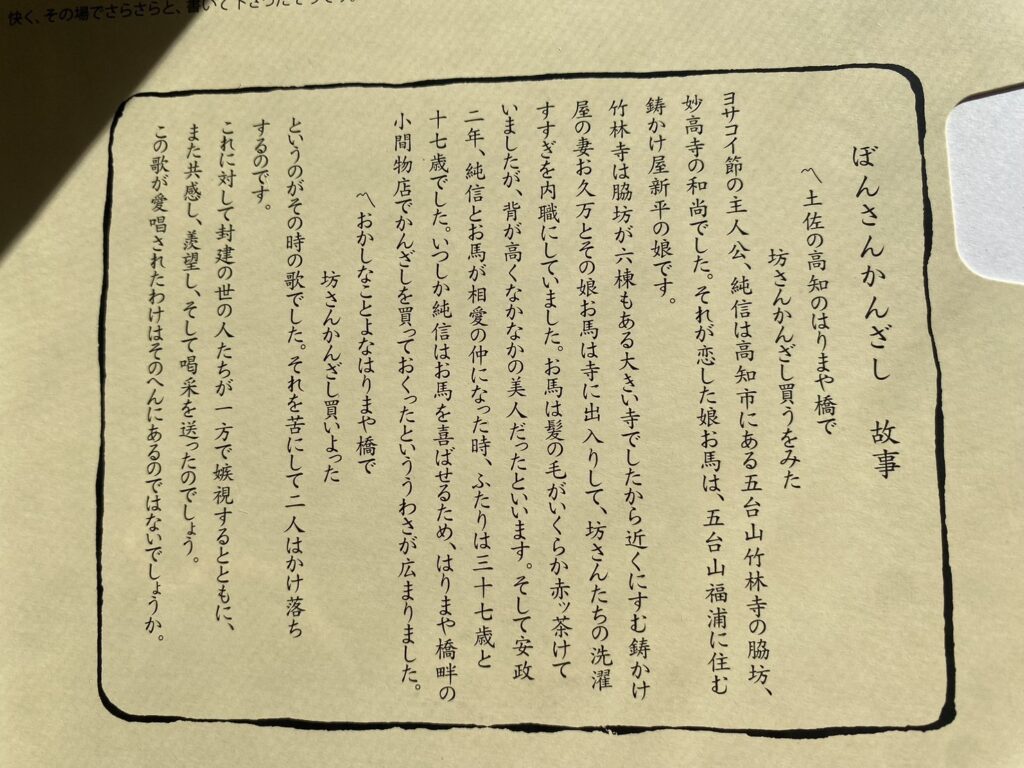 快く、その場でさらさらと、書いて下さったそうです。
ぼんさんかんざし　故事
〽土佐の高知のはりまや橋で
坊さんかんざし買うをみた
ヨサコイ節の主人公、純信は高知市にある五台山竹林寺の脇坊、
妙高寺の和尚でした。それが恋した娘お馬は、五台山福浦に住む
鋳かけ屋新平の娘です。
竹林寺は脇坊が六棟もある大きい寺でしたから近くにすむ鋳かけ
屋の妻お久万とその娘お馬は寺に出入りして、坊さんたちの洗濯
すすぎを内職にしていました。お馬は髪の毛がいくらか赤ッ茶けて
いましたが、背が高くなかなかの美人だったといいます。そして安政
二年、純信とお馬が相愛の仲になった時、ふたりは三十七歳と
十七歳でした。いつしか純信はお馬を喜ばせるため、はりまや橋畔の
小間物店でかんざしを買っておくったといううわさが広まりました。
〽おかしなことよなはりまや橋で
坊さんかんざし買いよった
というのがその時の歌でした。それを苦にして二人はかけ落ち
するのです。
これに対して封建の世の人たちが一方で嫉視するとともに、
また共感し、羨望し、そして喝采を送ったのでしょう。
この歌が愛唱されたわけはそのへんにあるのではないでしょうか。